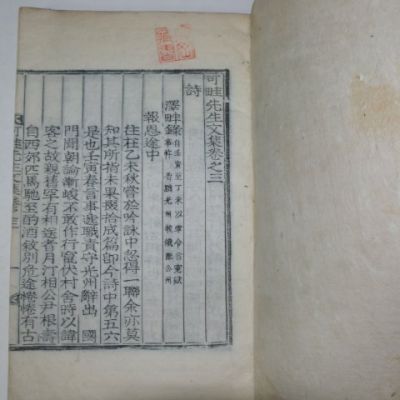 可畦先生文集卷之三
詩
澤畔錄
報恩途中
往在乙未秋嘗於吟詠中忽得一聯余亦莫
知其所指未果裒拾成篇即今詩中第五六
是也壬寅春言事遞職責守光州辭出 國
門聞朝論漸峻不敢作行竄伏村舍時以諱
客之故親舊罕有相送者月汀相公尹根壽
自西郊匹馬馳至酌酒敘別危途惓惓有古